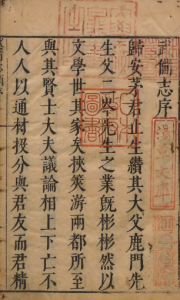 武備志序
歸安茅君止生纘其大父鹿門先
生父二岑先生之業既彬彬然以
文學世其家矣挾筴游兩都所至
與其賢士大夫議論相上下亡不
人人以通材投分與君友而君精